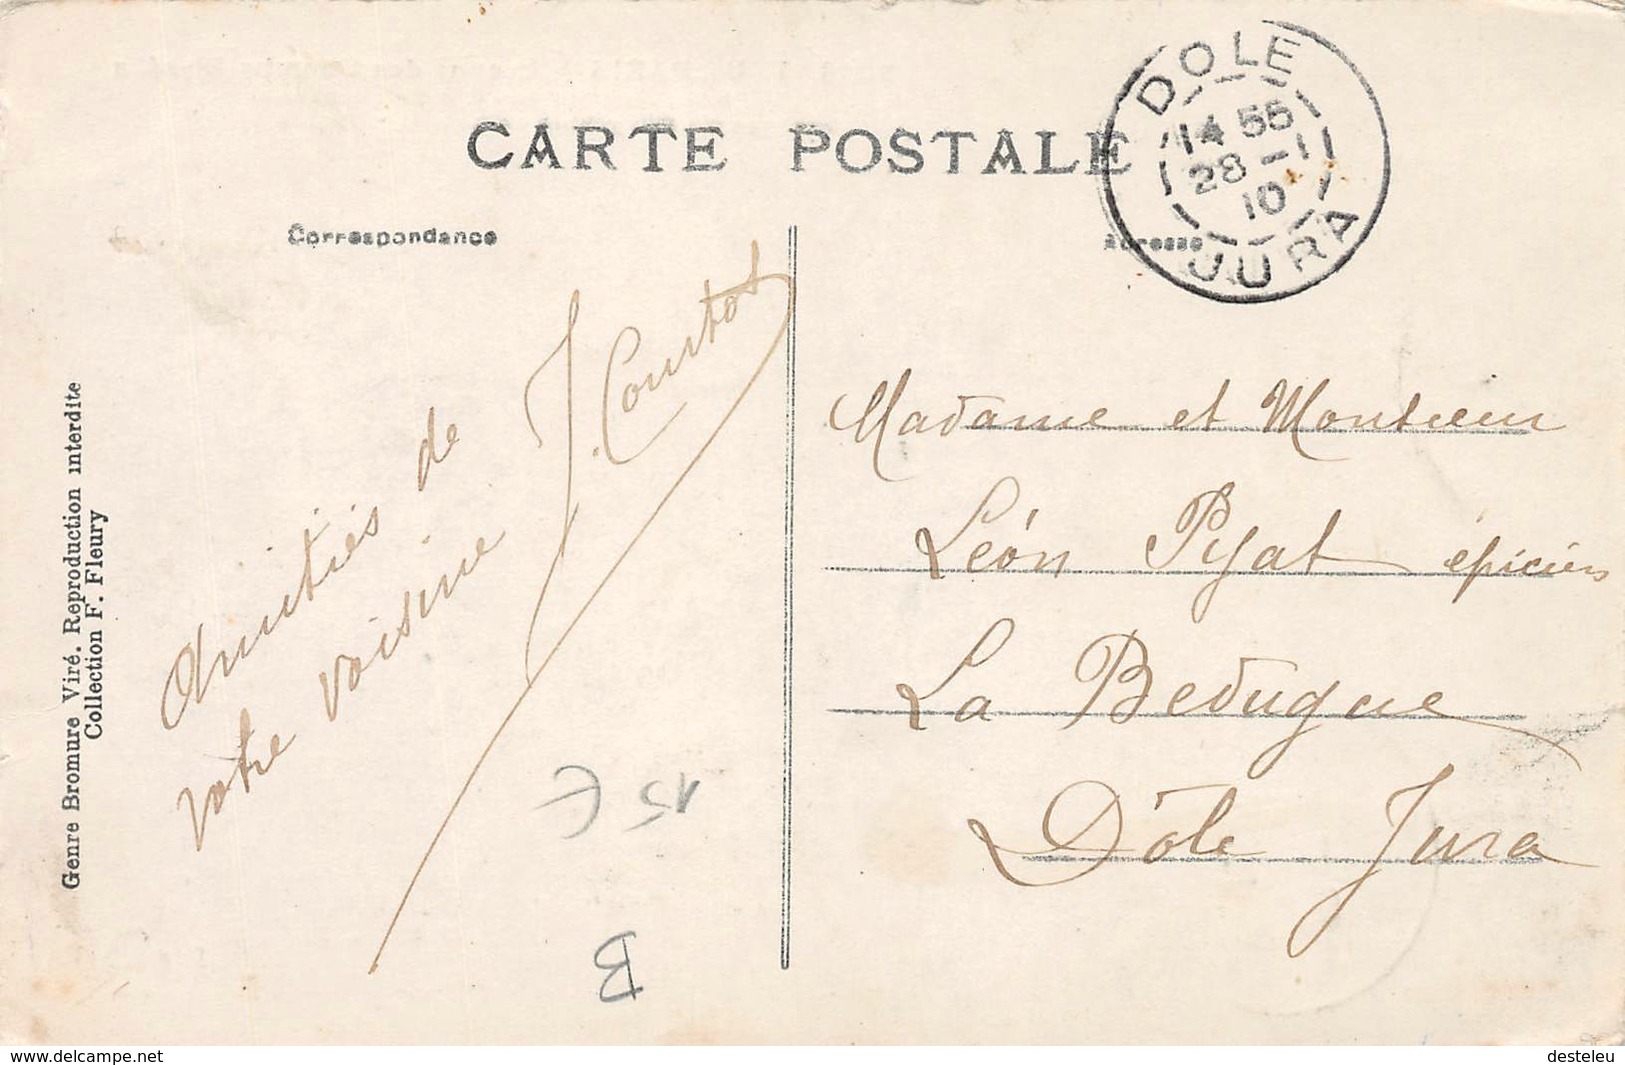 CARTE POSTALE
DOLE
14 55
28 - 1
10
JURA
Correspondance
Adresse
Amitiés de
votre voisine J. Courtot
Madame et Monsieur
Léon Pyat épiciers
La Bedugue
Dôle Jura
Genre Bromure Viré. Reproduction interdite
Collection F. Fleury
15 €
B
Website : www.delcampe.net
desteleu